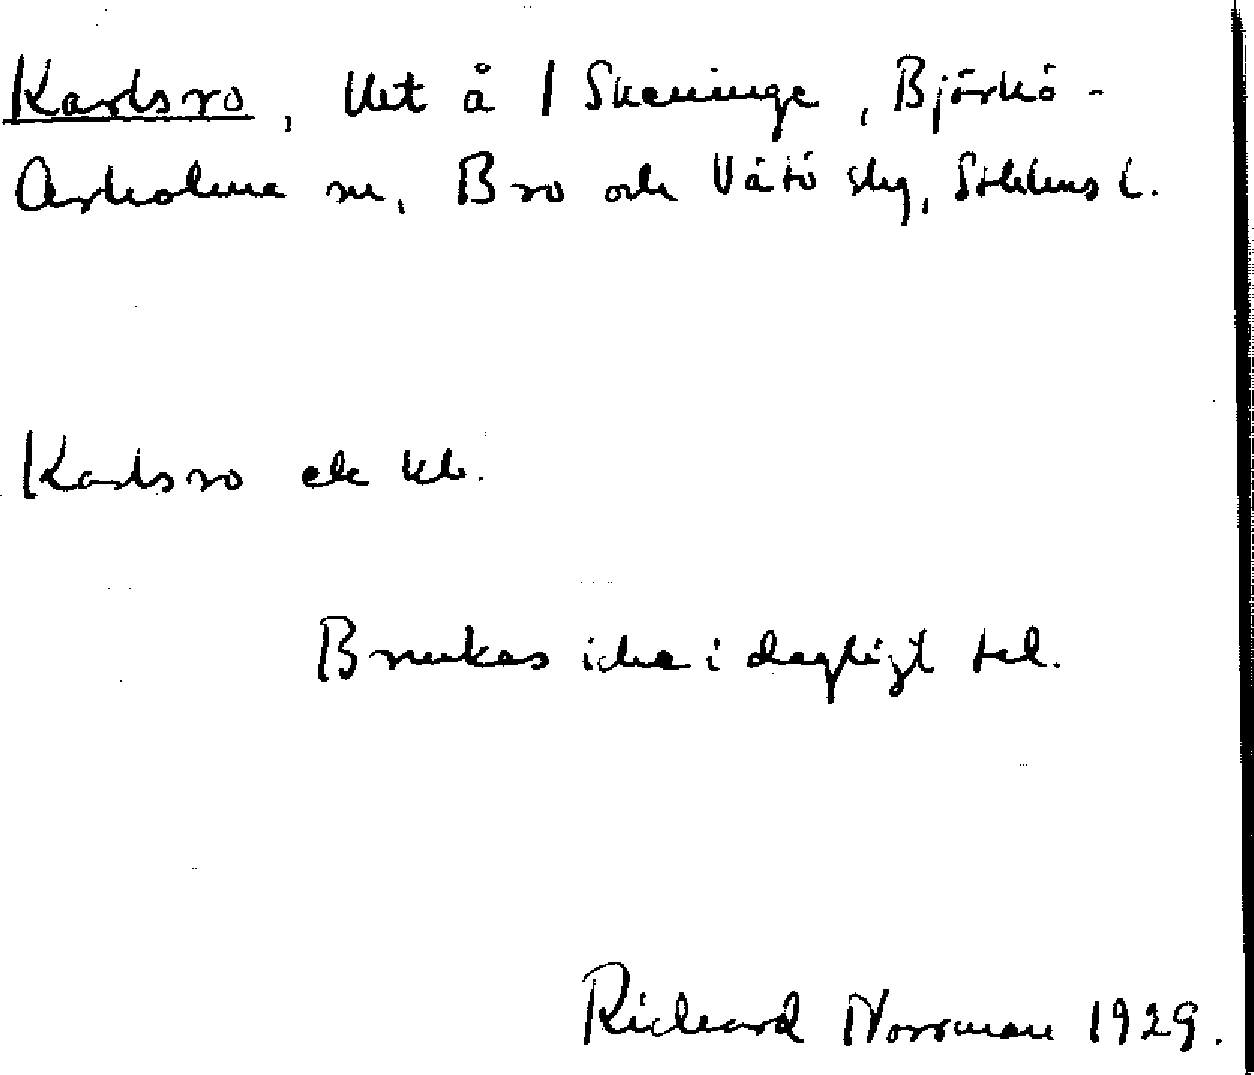 Karlsro, lht å 1 Skeninge, Björkö-
Arholma sn, Bro och Vätö skg, Sthlms l.
Karlsro ek kb.
Brukas icke i dagligt tal.
Richard Norrman 1929.